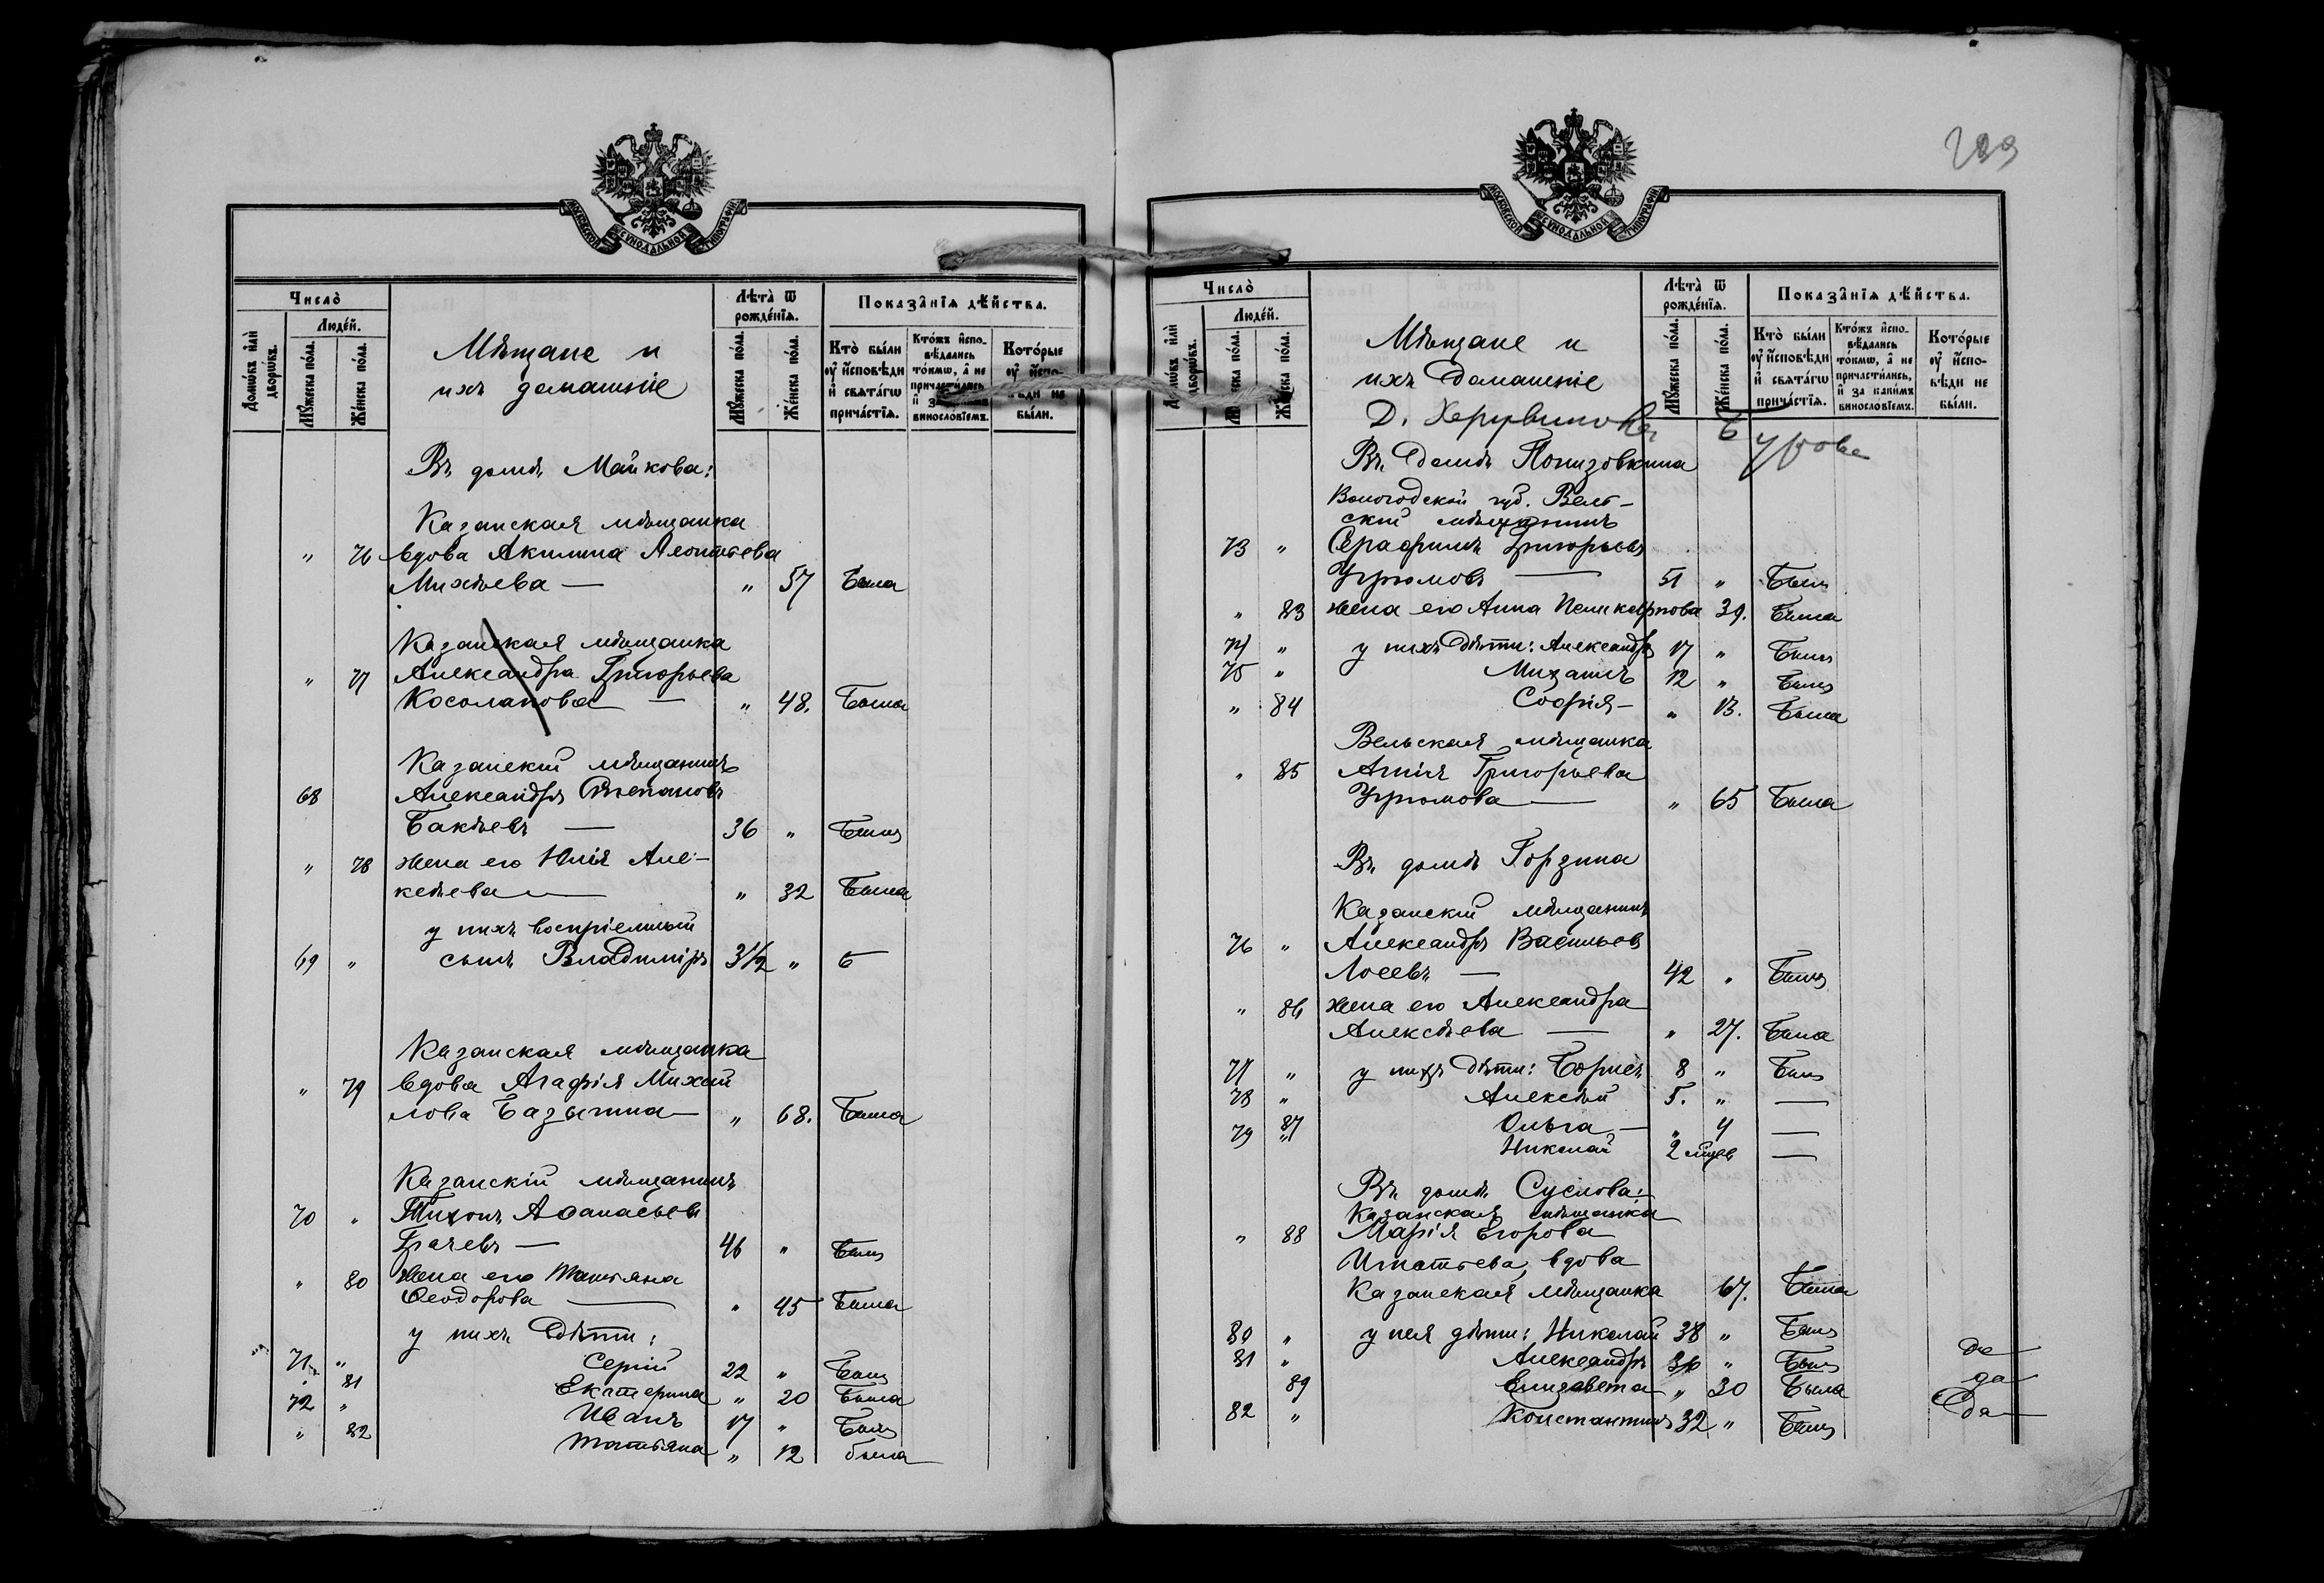 МОСКОВСКОЙ СѴНОДАЛЬНОЙ ТИПОГРАФІИ
Число̀
Людей.
Домѡвъ и҆лѝ дворѡвъ.
Мꙋжеска по́ла.
Же́нска по́ла.
Мѣщане и
ихъ домашніе
Лѣта̀ ѿ рожде́нїѧ.
Мꙋжеска по́ла.
Же́нска по́ла.
Показа̑нїѧ дѣ́йства.
Кто̀ бы́ли ᲂу҆ и҆сповѣди и҆ свѧта́гѡ прича́стїѧ.
Кто́жъ и҆спо-
вѣдались
то́кмѡ, а҆ не
причасти́лись,
винословїемъ.
Кото́рые
бы́ли.
Въ домѣ Майкова:
Казанская мѣщанка
" 76 вдова Акилина Леонтьева
Михѣева — " 57 Была
Казанская мѣщанка
" 77 Александра Григорьева
Косолапова — " 48. Была
Казанскій мѣщанинъ
68 Александръ Степановъ
Бакѣевъ — 36 " Былъ
" 78 жена его Юлія Але-
ксѣева — " 32 Была
у нихъ воспріемный
69 " сынъ Владиміръ 3½ " Б
Казанская мѣщанка
" 79 вдова Агафія Михай
лова Базыгина — " 68. Была
Казанскій мѣщанинъ
70 " Тихонъ Аѳанасьевъ
Грачевъ — 46 " Былъ
" 80 жена его Татьяна
Ѳеодорова — " 45 Была
у нихъ дѣти:
71 " Сергій 22 " Былъ
" 81 Екатерина " 20 Была
72 " Иванъ 17 " Былъ
" 82 Татьяна " 12 была
МОСКОВСКОЙ СѴНОДАЛЬНОЙ ТИПОГРАФІИ
Число̀
Людей.
Мѣщане и
ихъ домашніе
Д. Херувимова
Лѣта̀ ѿ рожде́нїѧ.
Мꙋжеска по́ла.
Же́нска по́ла.
Показа̑нїѧ дѣ́йства.
Кто̀ бы́ли ᲂу҆ и҆сповѣди и҆ свѧта́гѡ прича́стїѧ.
Кто́жъ и҆спо-
вѣдались
то́кмѡ, а҆ не
причасти́лись,
и҆ за каки́мъ
винословїемъ.
Кото́рые
ᲂу҆ и҆спо-
вѣди не
бы́ли.
Въ домѣ Понизовкина
Вологодской губ. Вель-
скій мѣщанинъ
73 " Серафимъ Григорьевъ
Угрюмовъ — 51 " Былъ
" 83 жена его Анна Поликарпова 39. Была
74 " у нихъ дѣти: Александръ 17 " Былъ
75 " Михаилъ 12 " Былъ
" 84 Софія — " 13. Была
Вельская мѣщанка
" 85 Агнія Григорьева
Угрюмова — " 65 Была
Въ домѣ Горзина
Казанскій мѣщанинъ
76 " Александръ Васильевъ
Лосевъ — 42 " Былъ
" 86 жена его Александра
Алексѣева — " 27. Была
77 " у нихъ дѣти: Борисъ 8 " Былъ
78 " Алексѣй 5. " —
87 Ольга — " 4 —
79 " Николай 2 мѣс —
Въ домѣ Суслова:
Казанская мѣщанка
" 88 Марія Егорова
Игнатьева, вдова
Казанская мѣщанка 67. Была
80 " у нея дѣти: Николай 38 " Былъ
81 " Александръ 36 " Былъ да
89 Елизавета " 30 Была да
82 " Константинъ 32 " Былъ да